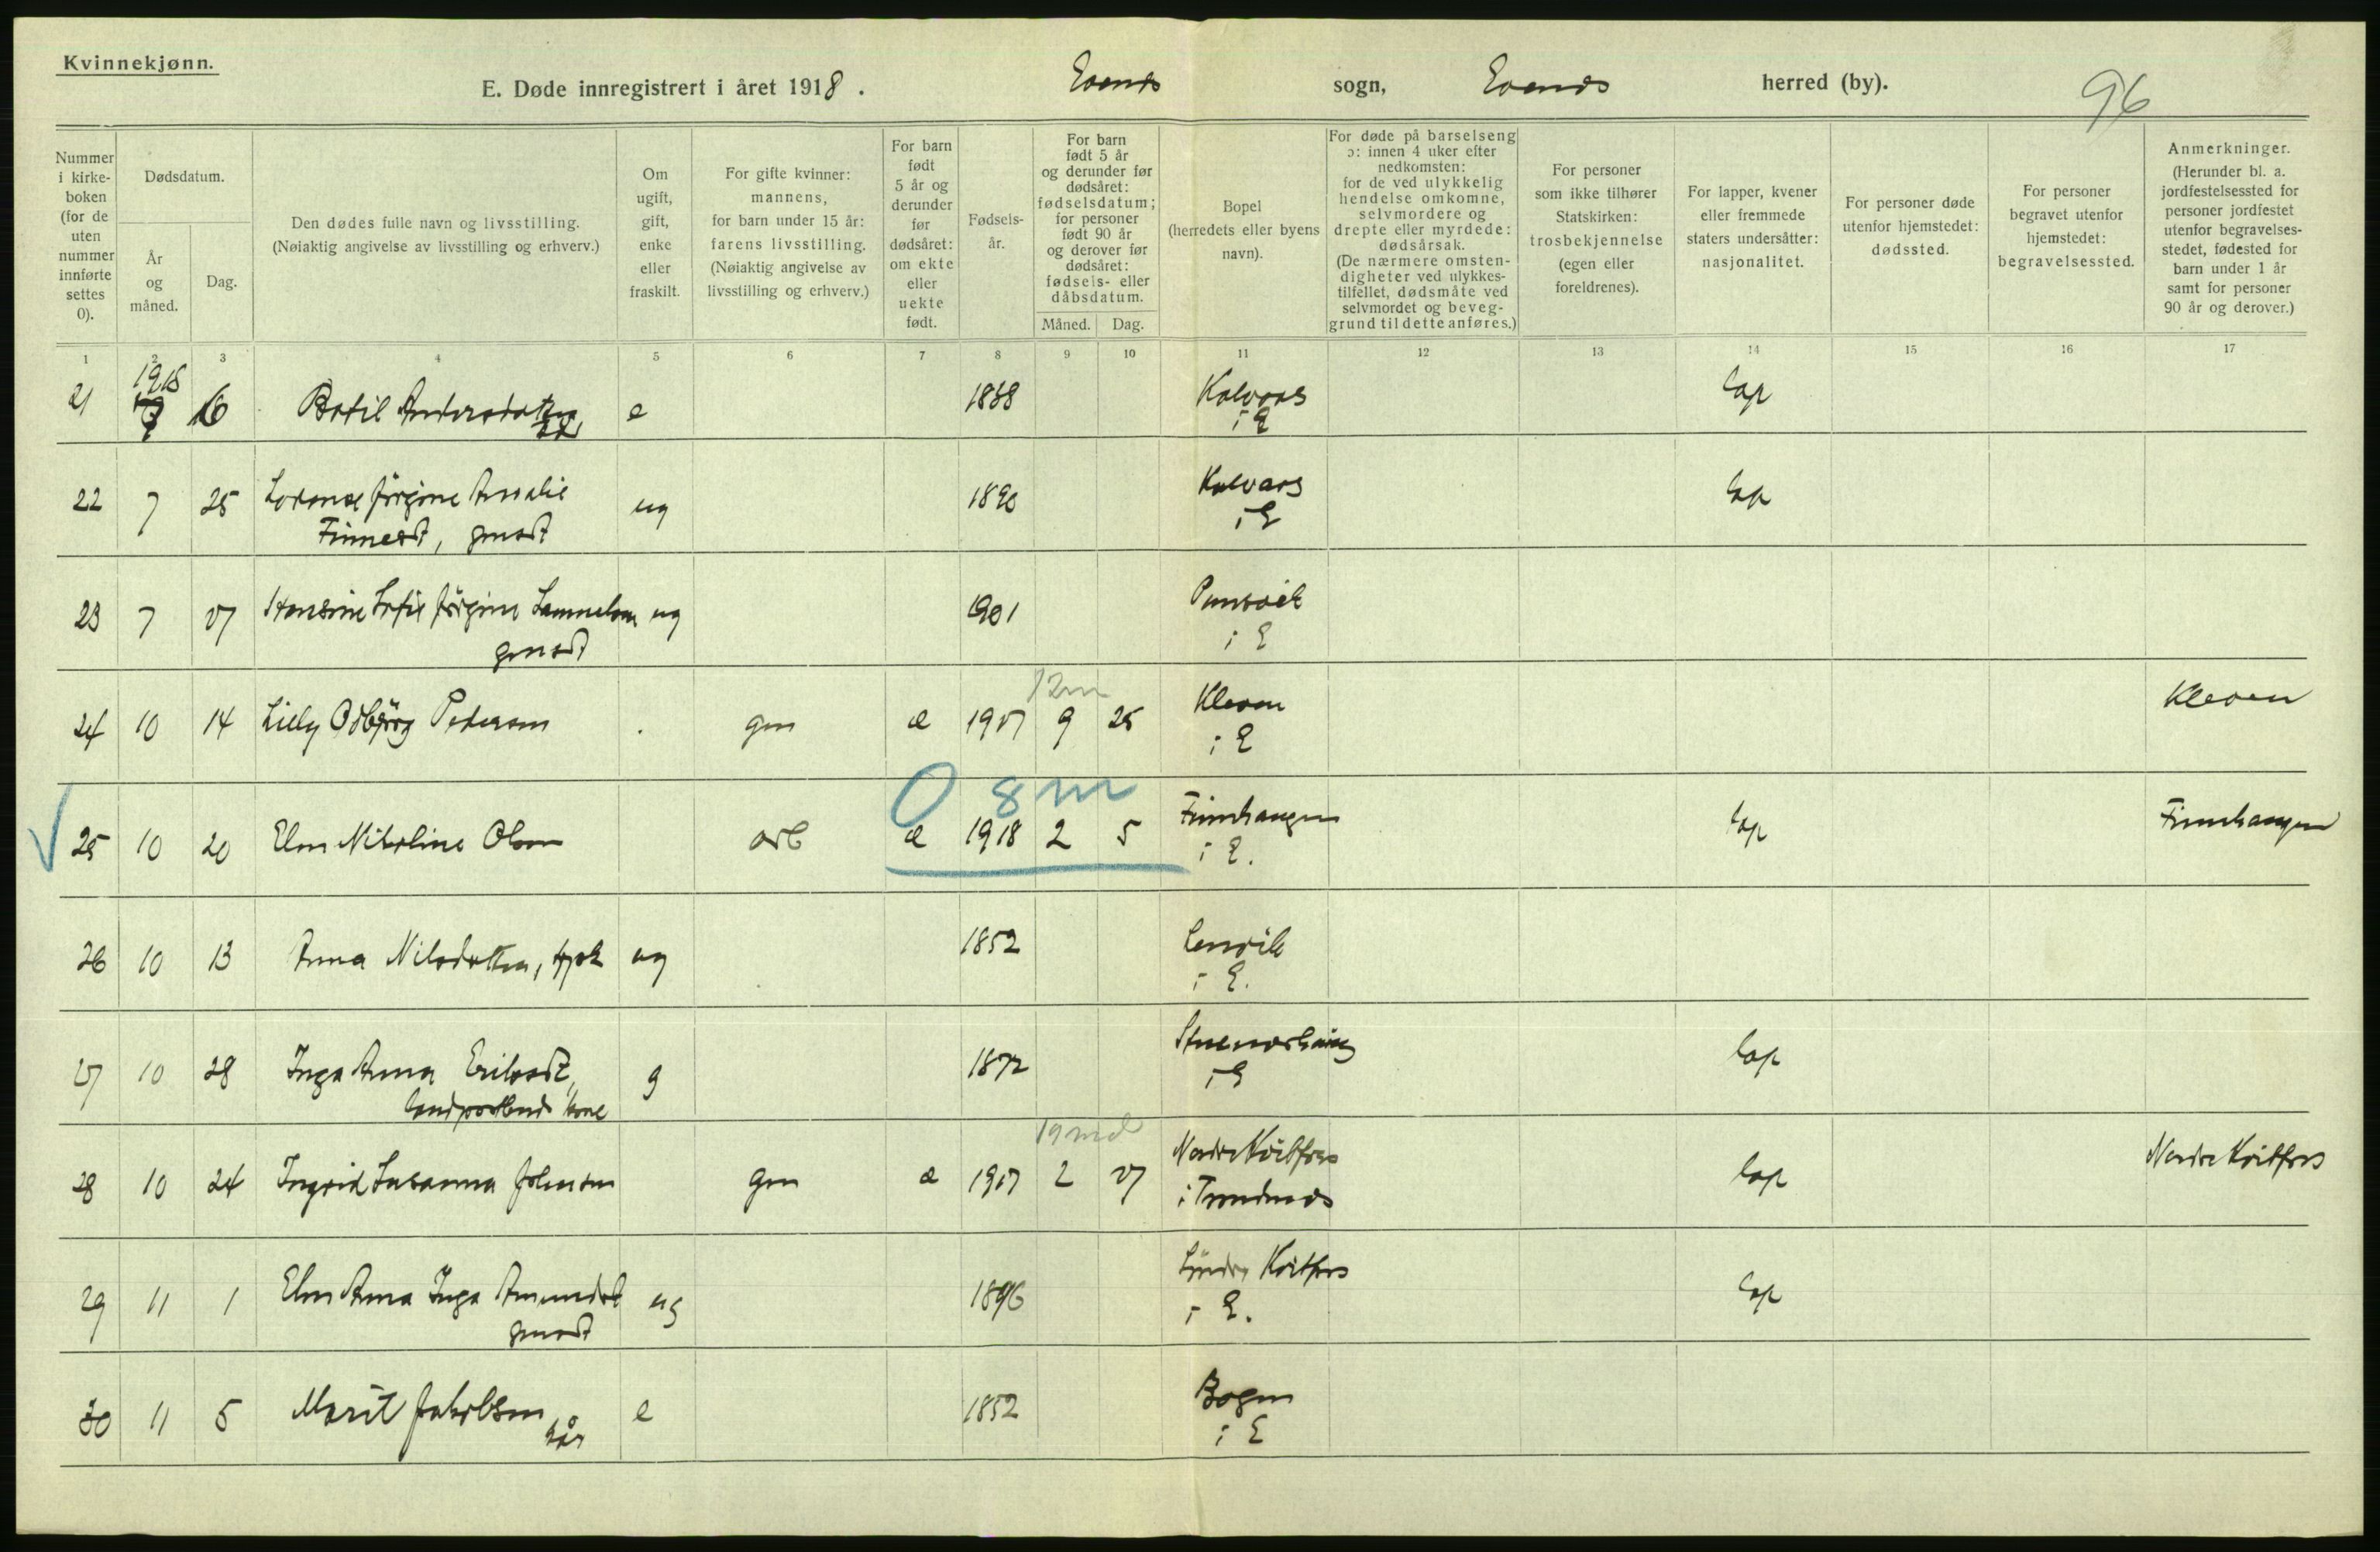 Kvinnekjønn.
E. Døde innregistrert i året 1918. Evenes sogn, Evenes herred (by). 96
Nummer
i kirke-
boken
(for de
uten
nummer
innførte
settes
0).
Dødsdatum.
År
og
måned.
Dag.
Den dødes fulle navn og livsstilling.
(Nøiaktig angivelse av livsstilling og erhverv.)
Om
ugift,
gift,
enke
eller
fraskilt.
For gifte kvinner:
mannens,
for barn under 15 år:
farens livsstilling.
(Nøiaktig angivelse av
livsstilling og erhverv.)
For barn
født
5 år og
derunder
før
dødsåret:
om ekte
eller
uekte
født.
Fødsels-
år.
For barn
født 5 år
og derunder før
dødsåret:
fødselsdatum;
for personer
født 90 år
og derover før
dødsåret:
fødsels- eller
dåbsdatum.
Måned. Dag.
Bopel
(herredets eller byens
navn).
For døde på barselseng
ɔ: innen 4 uker efter
nedkomsten:
for de ved ulykkelig
hendelse omkomne,
selvmordere og
drepte eller myrdede:
dødsårsak.
(De nærmere omsten-
digheter ved ulykkes-
tilfellet, dødsmåte ved
selvmordet og beveg-
grund til dette anføres.)
For personer
som ikke tilhører
Statskirken:
trosbekjennelse
(egen eller
foreldrenes).
For lapper, kvener
eller fremmede
staters undersåtter:
nasjonalitet.
For personer døde
utenfor hjemstedet:
dødssted.
For personer
begravet utenfor
hjemstedet:
begravelsessted.
Anmerkninger.
(Herunder bl. a.
jordfestelsessted for
personer jordfestet
utenfor begravelses-
stedet, fødested for
barn under 1 år
samt for personer
90 år og derover.)
1 2 3 4 5 6 7 8 9 10 11 12 13 14 15 16 17
1918
21 7 16 Botil Andersdatter e 1838 Kalvaas lap
i E
22 7 25 Lorense Jörgine Amalie ug 1890 Kalvaas lap
Finnesdt, gmsdt i E
23 7 27 Hansine Sofie Jörgine Samuelsen ug 1901 Punsvik
gmsdt i E
12m
24 10 14 Lilly Odbjörg Pedersen gm e 1917 9 25 Kleven Kleven
i E
0 8m
25 10 20 Elen Nikoline Olsen arb e 1918 2 5 Finnhaugen lap Finnhaugen
i E.
26 10 13 Anna Nilsdatter, ug 1852 Lenvik
i E.
27 10 28 Inga Anna Eriksdt, g 1872 lap
landpostbuds kone i E
19 md
28 10 24 Ingrid Susanna Johnsen gm e 1917 2 27 Nordre Kvitfors lap Nordre Kvitfors
i Trondenes
29 11 1 Elen Anna Inga Amundsdt ug 1896 Söndre Kvitfors lap
gmsdt i E.
30 11 5 Marit Jakobsen e 1852 Bogen
kår i E